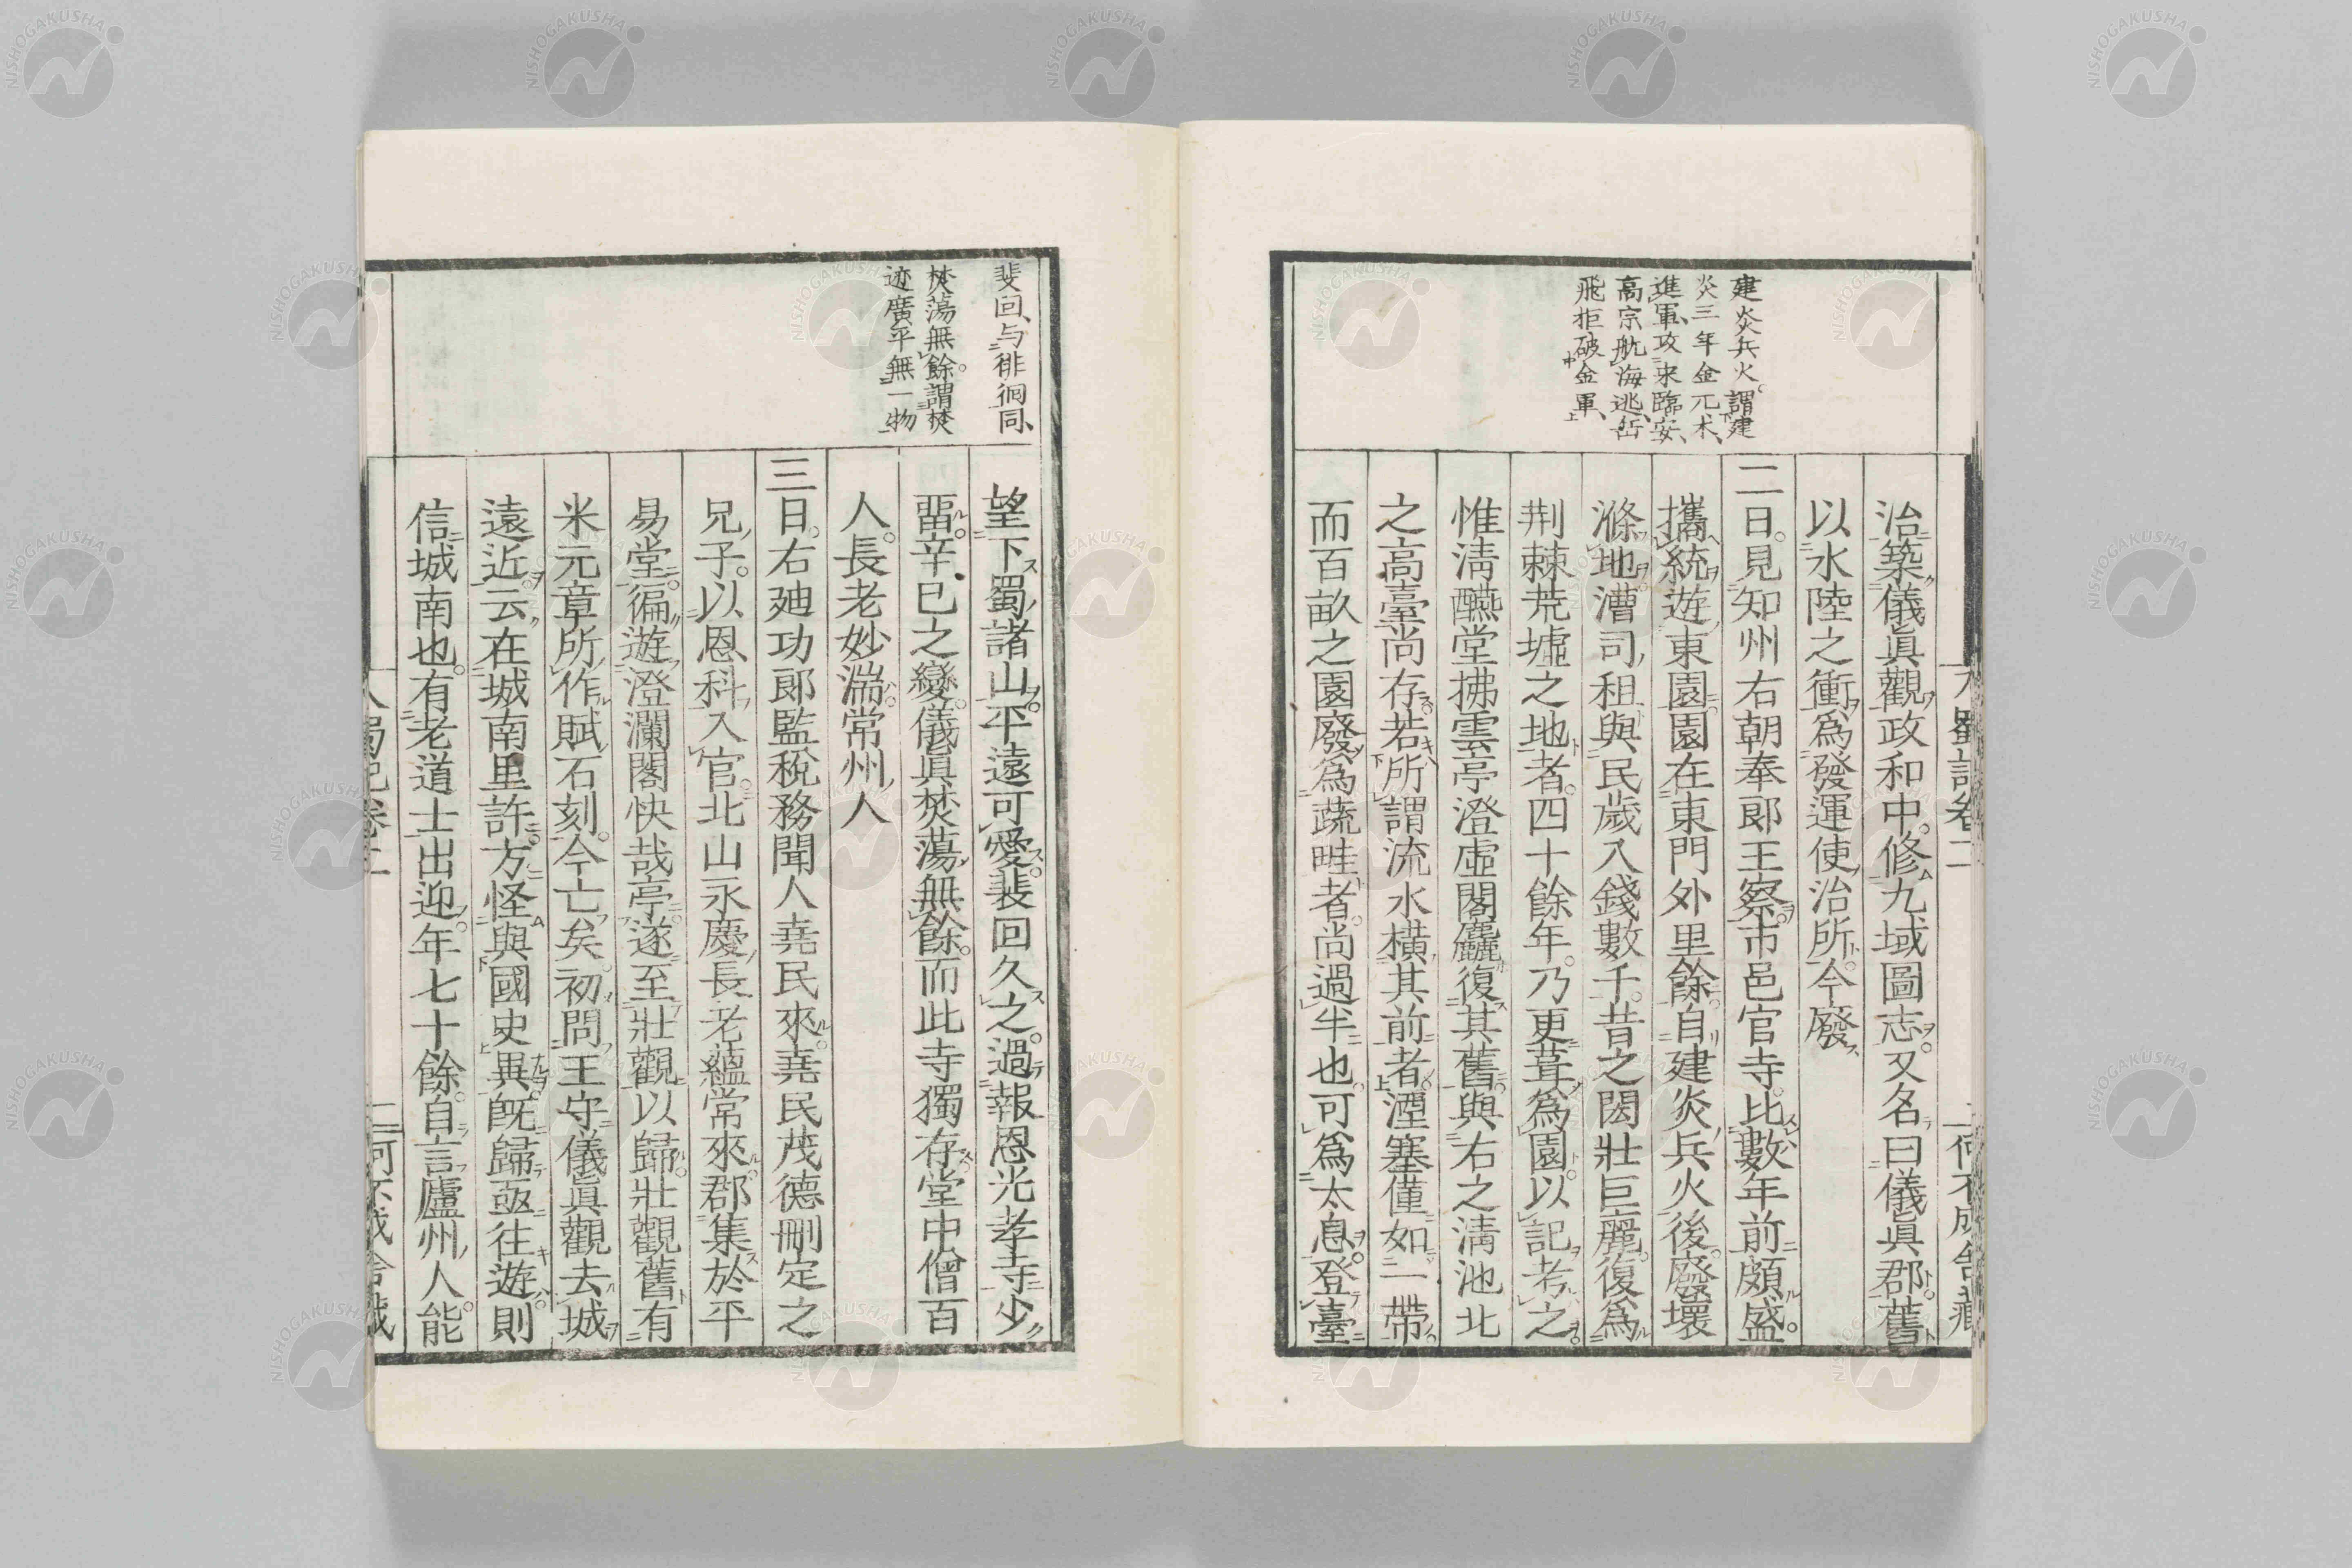 建炎兵火。謂建
炎三年金兀朮、
進軍、攻来臨安、
高宗航海逃、岳
飛拒破金軍、
治築儀眞觀政和中。修九域圖志。又名曰儀眞郡。舊
以水陸之衝。爲發運使治所。今廢
二日。見知州右朝奉郎王察。市邑官寺。比數年前頗盛。
攜統遊東園。園在東門外里餘。自建炎兵火後。廢壞
滌地。漕司租與民。歲入錢數千。昔之閎壯巨麗。復爲
荆棘荒墟之地者。四十餘年。乃更葺爲園。以記考之。
惟淸醼堂拂雲亭澄虛閣麤復其舊。與右之淸池北
之高臺尚存。若所謂流水横其前者。湮塞僅如一帶。
而百畝之園廢爲蔬畦者。尚過半也。可爲太息。登臺
斐回、与徘徊同、
焚蕩無餘。謂焚
迹廣平無一物
望下蜀諸山。平遠可愛。裴回久之。過報恩光孝寺少
畱。辛巳之變。儀眞焚蕩無餘。而此寺獨存。堂中僧百
人。長老妙湍。常州人
三日。右廸功郎監稅務聞人堯民來。堯民茂德刪定之
兄子。以恩科入官。北山永慶長老蘊常來郡集於平
易堂。徧遊澄瀾閣快哉亭。遂至壯觀以歸。壯觀舊有
米元章所作賦石刻。今亡矣。初問王守儀眞觀去城
遠近。云在城南里許。方怪與國史異。旣歸亟往遊。則
信城南也。有老道士出迎。年七十餘。自言廬州人。能